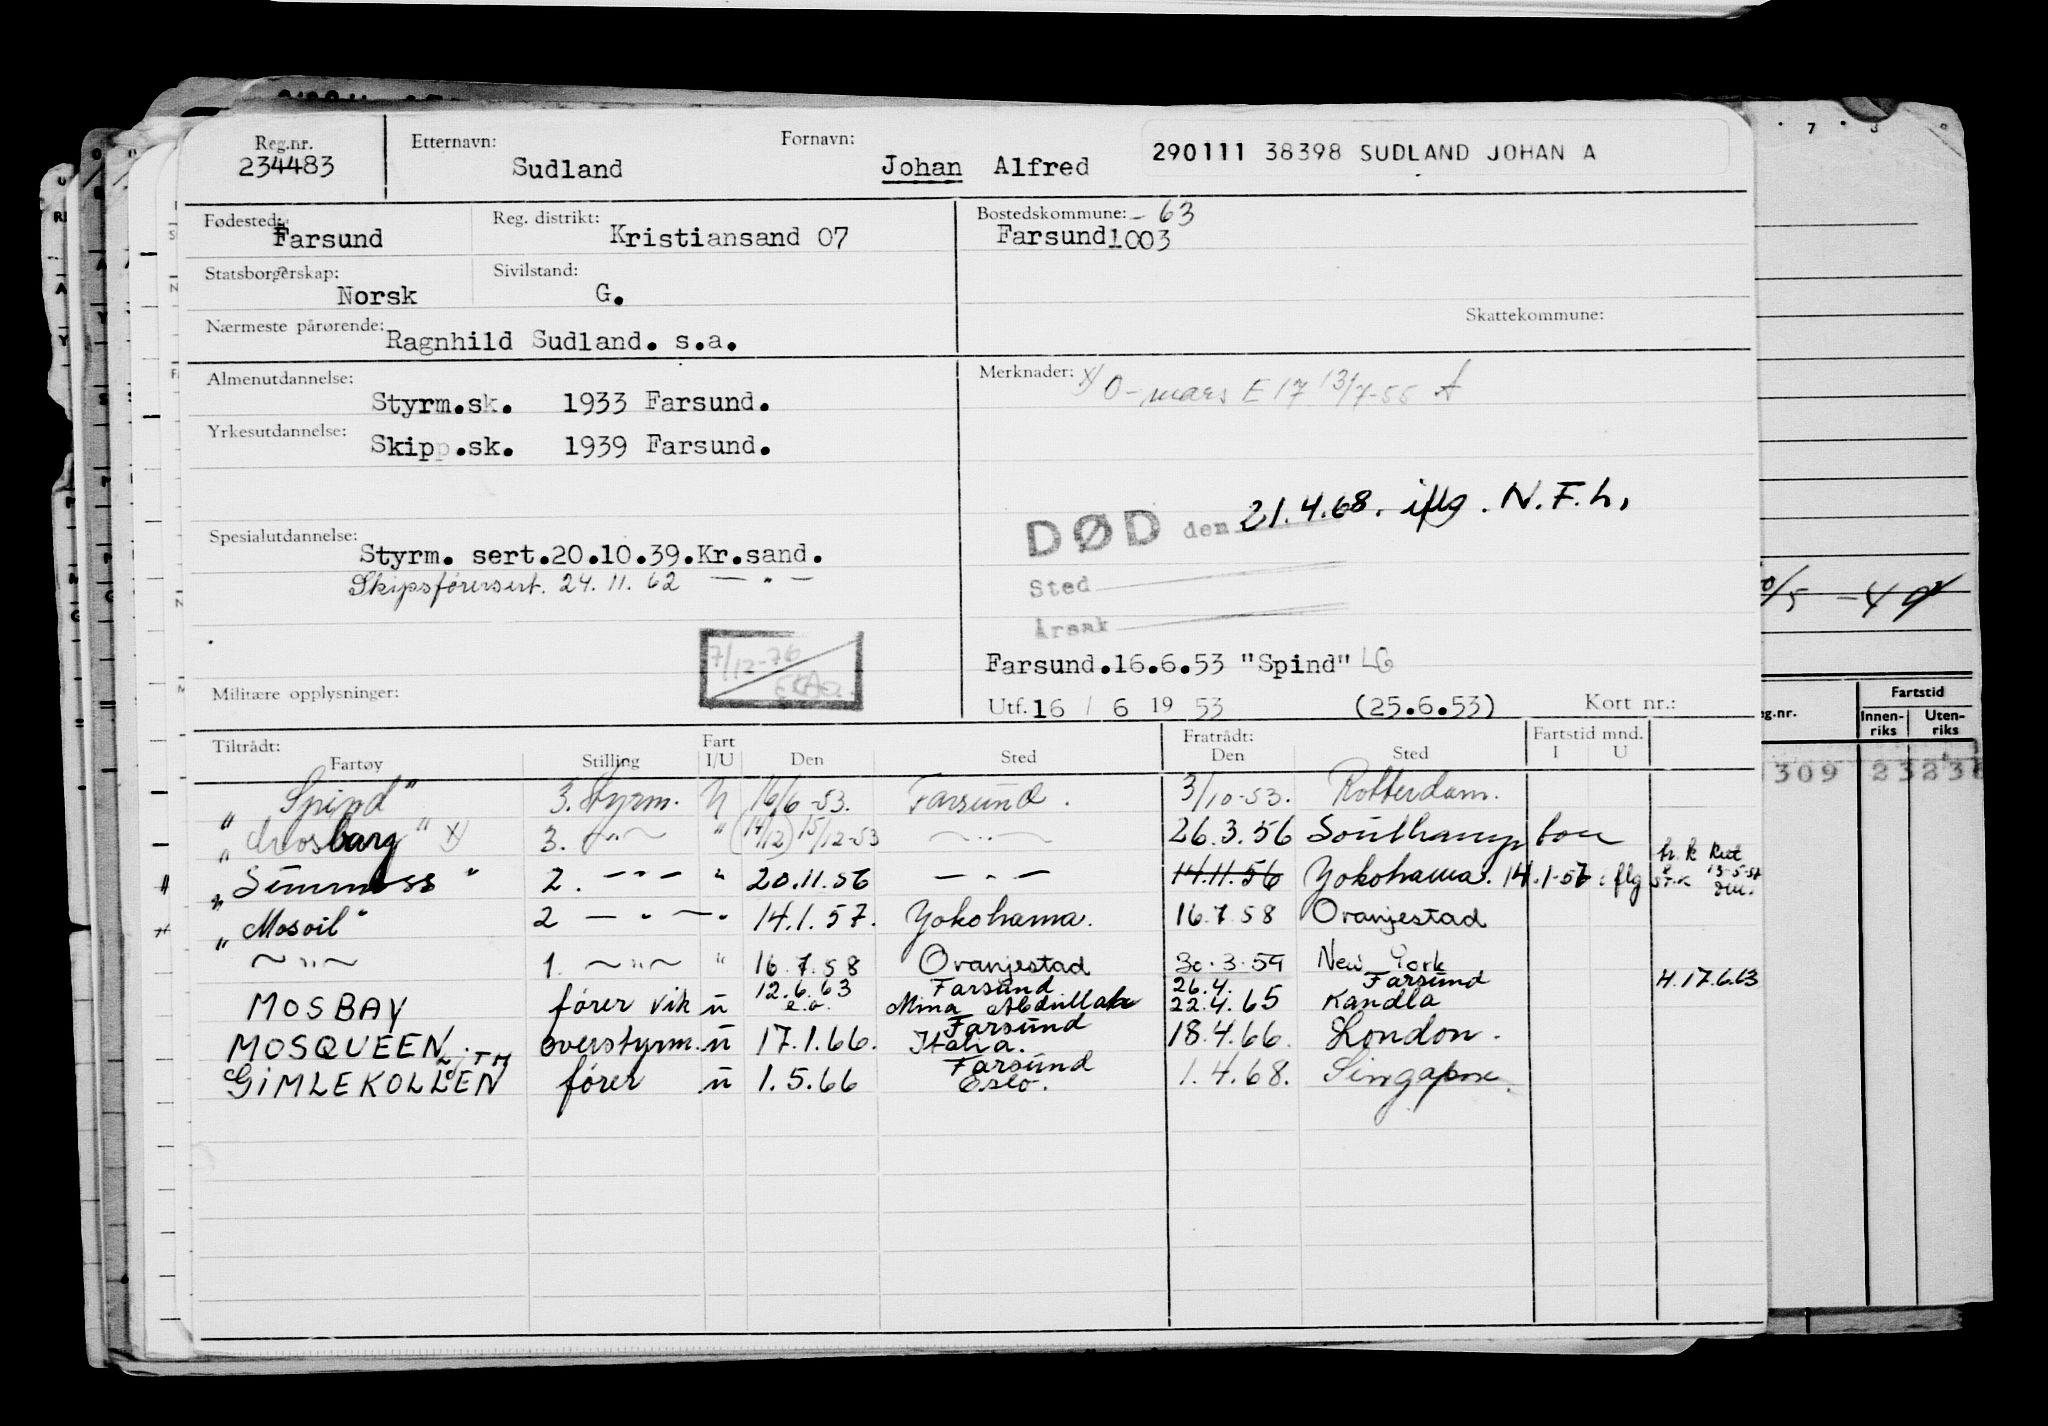 Reg.nr. Etternavn: Fornavn: 290111 38398 SUDLAND JOHAN A
234483 Sudland Johan Alfred
Fødested: Reg. distrikt: Bostedskommune: - 63
Farsund Kristiansand 07 Farsund 1003
Statsborgerskap: Sivilstand:
Norsk G.
Nærmeste pårørende: Skattekommune:
Ragnhild Sudland. s.a.
Almenutdannelse: Merknader: x/ O-mars E 17 13/7-55 A
Styrm.sk. 1933 Farsund.
Yrkesutdannelse:
Skipp.sk. 1939 Farsund.
DØD den 21.4.68. iflg. N.F.h.
Spesialutdannelse:
Styrm. sert.20.10.39.Kr.sand.
Skipsførersert. 24.11.62 — " —
Sted
Årsak
7/12-76
Farsund.16.6.53 "Spind" LG
Militære opplysninger:
Utf. 16 / 6 19 53 (25.6.53) Kort nr.:
Tiltrådt: Fart Fratrådt: Fartstid mnd.
Fartøy Stilling I/U Den Sted Den Sted I U
"Spind" 3. Styrm. U 16/6-53. Farsund. 3/10-53. Rotterdam.
"Mosbarg" x) 3. — " — " (14/12) 15/12-53 — " — 26.3.56 Southampton
"Simmoss" 2. — " — " 20.11.56 — " — 14.11.56 Yokohama. 14.1-57 iflg
"Mosoil" 2 — " — " 14.1.57. Yokohama. 16.7.58 Oranjestad
— " — 1. — " — " 16.7.58 Oranjestad 30.3.59 New York
MOSBAY fører vik u 12.6.63 e.o. Farsund Mina Abdullah 26.4. 22.4.65 Farsund Kandla H.17.6.63
MOSQUEEN overstyrm. u 17.1.66. Farsund Italia. 18.4.66. London.
GIMLEKOLLEN fører u 1.5.66 Farsund Oslo. 1.4.68. Singapore.
Fartstid
g.nr. Innen-riks Uten-riks
309 23